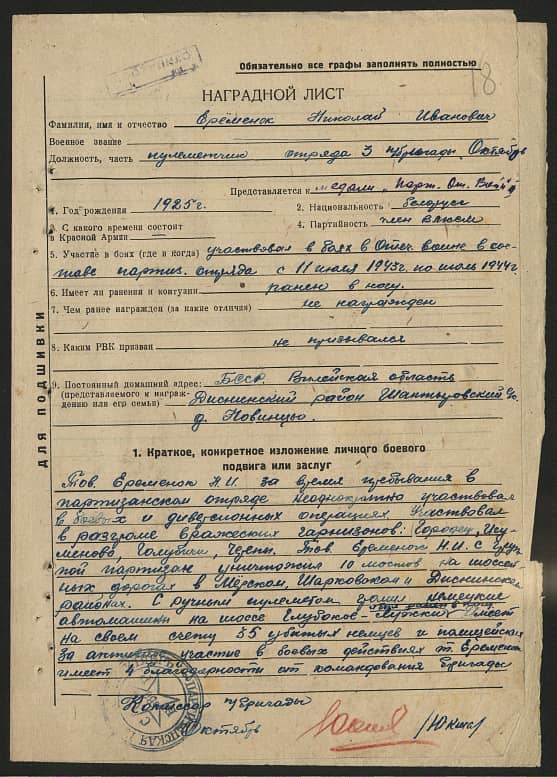 Обязательно все графы заполнять полностью
18
НАГРАДНОЙ ЛИСТ
Фамилия, имя и отчество Еремёнок Николай Иванович
Военное звание
Должность, часть пулеметчик отряда 3 п/бригады Октябрь
Представляется к медали „Парт. От. Войны
1. Год рождения 1925 г. 2. Национальность белорус
3. С какого времени состоит в Красной Армии 4. Партийность член ВЛКСМ
5. Участие в боях (где и когда) участвовал в боях в Отеч. войне в сос-
таве партиз. отряда с 11 июля 1943 г. по июль 1944 г.
6. Имеет ли ранения и контузии ранен в ногу.
7. Чем ранее награжден (за какие отличия) не награжден
8. Каким РВК призван не призывался
9. Постоянный домашний адрес: БССР Вилейская область
(представляемого к награж- Дисненский район
дению или его семьи)
д. Новинцы
ДЛЯ ПОДШИВКИ
1. Краткое, конкретное изложение личного боевого
подвига или заслуг
Тов. Еременок Н.И. за время пребывания в
партизанском отряде неоднократно участвовал
в боевых и диверсионных операциях. Участвовал
в разгроме вражеских гарнизонов: Городец,
Голубичи, Тов. Еременок Н.И. с груп-
пой партизан уничтожил 10 мостов на шоссей-
ных дорогах в Мёрском, Шарковском и Дисненском
районах. С ручным пулеметом громил немецкие
автомашины на шоссе Глубокое- Имеет
на своем счету 55 убитых немцев и полицейских
За активное участие в боевых действиях т. Еременок
имеет 4 благодарности от командования бригады
Комиссар п/бригады
Октябрь